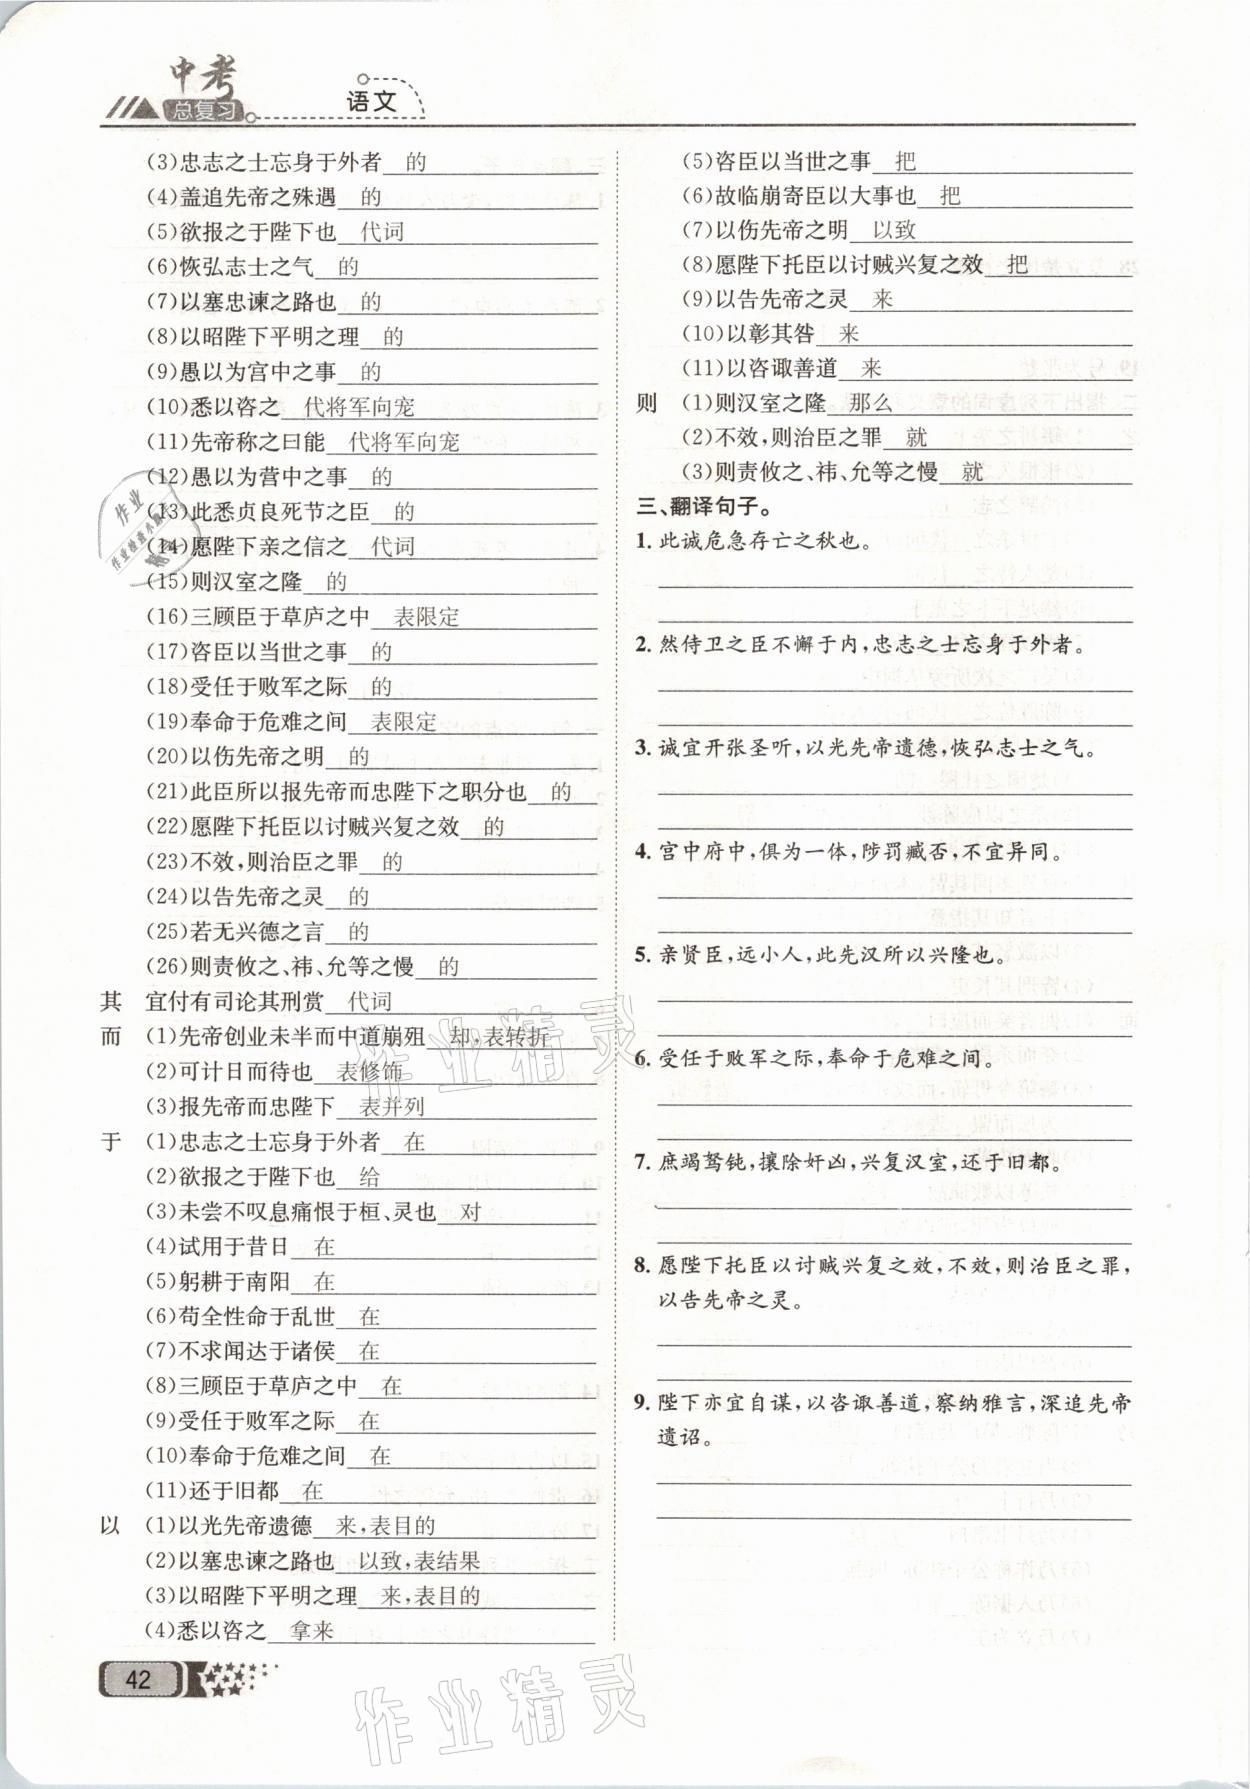 中考
总复习
语文
(3)忠志之士忘身于外者 的
(4)盖追先帝之殊遇 的
(5)欲报之于陛下也 代词
(6)恢弘志士之气 的
(7)以塞忠谏之路也 的
(8)以昭陛下平明之理 的
(9)愚以为宫中之事 的
(10)悉以咨之 代将军向宠
(11)先帝称之曰能 代将军向宠
(12)愚以为营中之事 的
(13)此悉贞良死节之臣 的
(14)愿陛下亲之信之 代词
(15)则汉室之隆 的
(16)三顾臣于草庐之中 表限定
(17)咨臣以当世之事 的
(18)受任于败军之际 的
(19)奉命于危难之间 表限定
(20)以伤先帝之明 的
(21)此臣所以报先帝而忠陛下之职分也 的
(22)愿陛下托臣以讨贼兴复之效 的
(23)不效,则治臣之罪 的
(24)以告先帝之灵 的
(25)若无兴德之言 的
(26)则责攸之、祎、允等之慢 的
其 宜付有司论其刑赏 代词
而 (1)先帝创业未半而中道崩殂 却,表转折
(2)可计日而待也 表修饰
(3)报先帝而忠陛下 表并列
于 (1)忠志之士忘身于外者 在
(2)欲报之于陛下也 给
(3)未尝不叹息痛恨于桓、灵也 对
(4)试用于昔日 在
(5)躬耕于南阳 在
(6)苟全性命于乱世 在
(7)不求闻达于诸侯 在
(8)三顾臣于草庐之中 在
(9)受任于败军之际 在
(10)奉命于危难之间 在
(11)还于旧都 在
以 (1)以光先帝遗德 来,表目的
(2)以塞忠谏之路也 以致,表结果
(3)以昭陛下平明之理 来,表目的
(4)悉以咨之 拿来
(5)咨臣以当世之事 把
(6)故临崩寄臣以大事也 把
(7)以伤先帝之明 以致
(8)愿陛下托臣以讨贼兴复之效 把
(9)以告先帝之灵 来
(10)以彰其咎 来
(11)以咨诹善道 来
则 (1)则汉室之隆 那么
(2)不效,则治臣之罪 就
(3)则责攸之、祎、允等之慢 就
三、翻译句子。
1. 此诚危急存亡之秋也。
2. 然侍卫之臣不懈于内,忠志之士忘身于外者。
3. 诚宜开张圣听,以光先帝遗德,恢弘志士之气。
4. 宫中府中,俱为一体,陟罚臧否,不宜异同。
5. 亲贤臣,远小人,此先汉所以兴隆也。
6. 受任于败军之际,奉命于危难之间。
7. 庶竭驽钝,攘除奸凶,兴复汉室,还于旧都。
8. 愿陛下托臣以讨贼兴复之效,不效,则治臣之罪,
以告先帝之灵。
9. 陛下亦宜自谋,以咨诹善道,察纳雅言,深追先帝
遗诏。
42
作业精灵
作业精灵